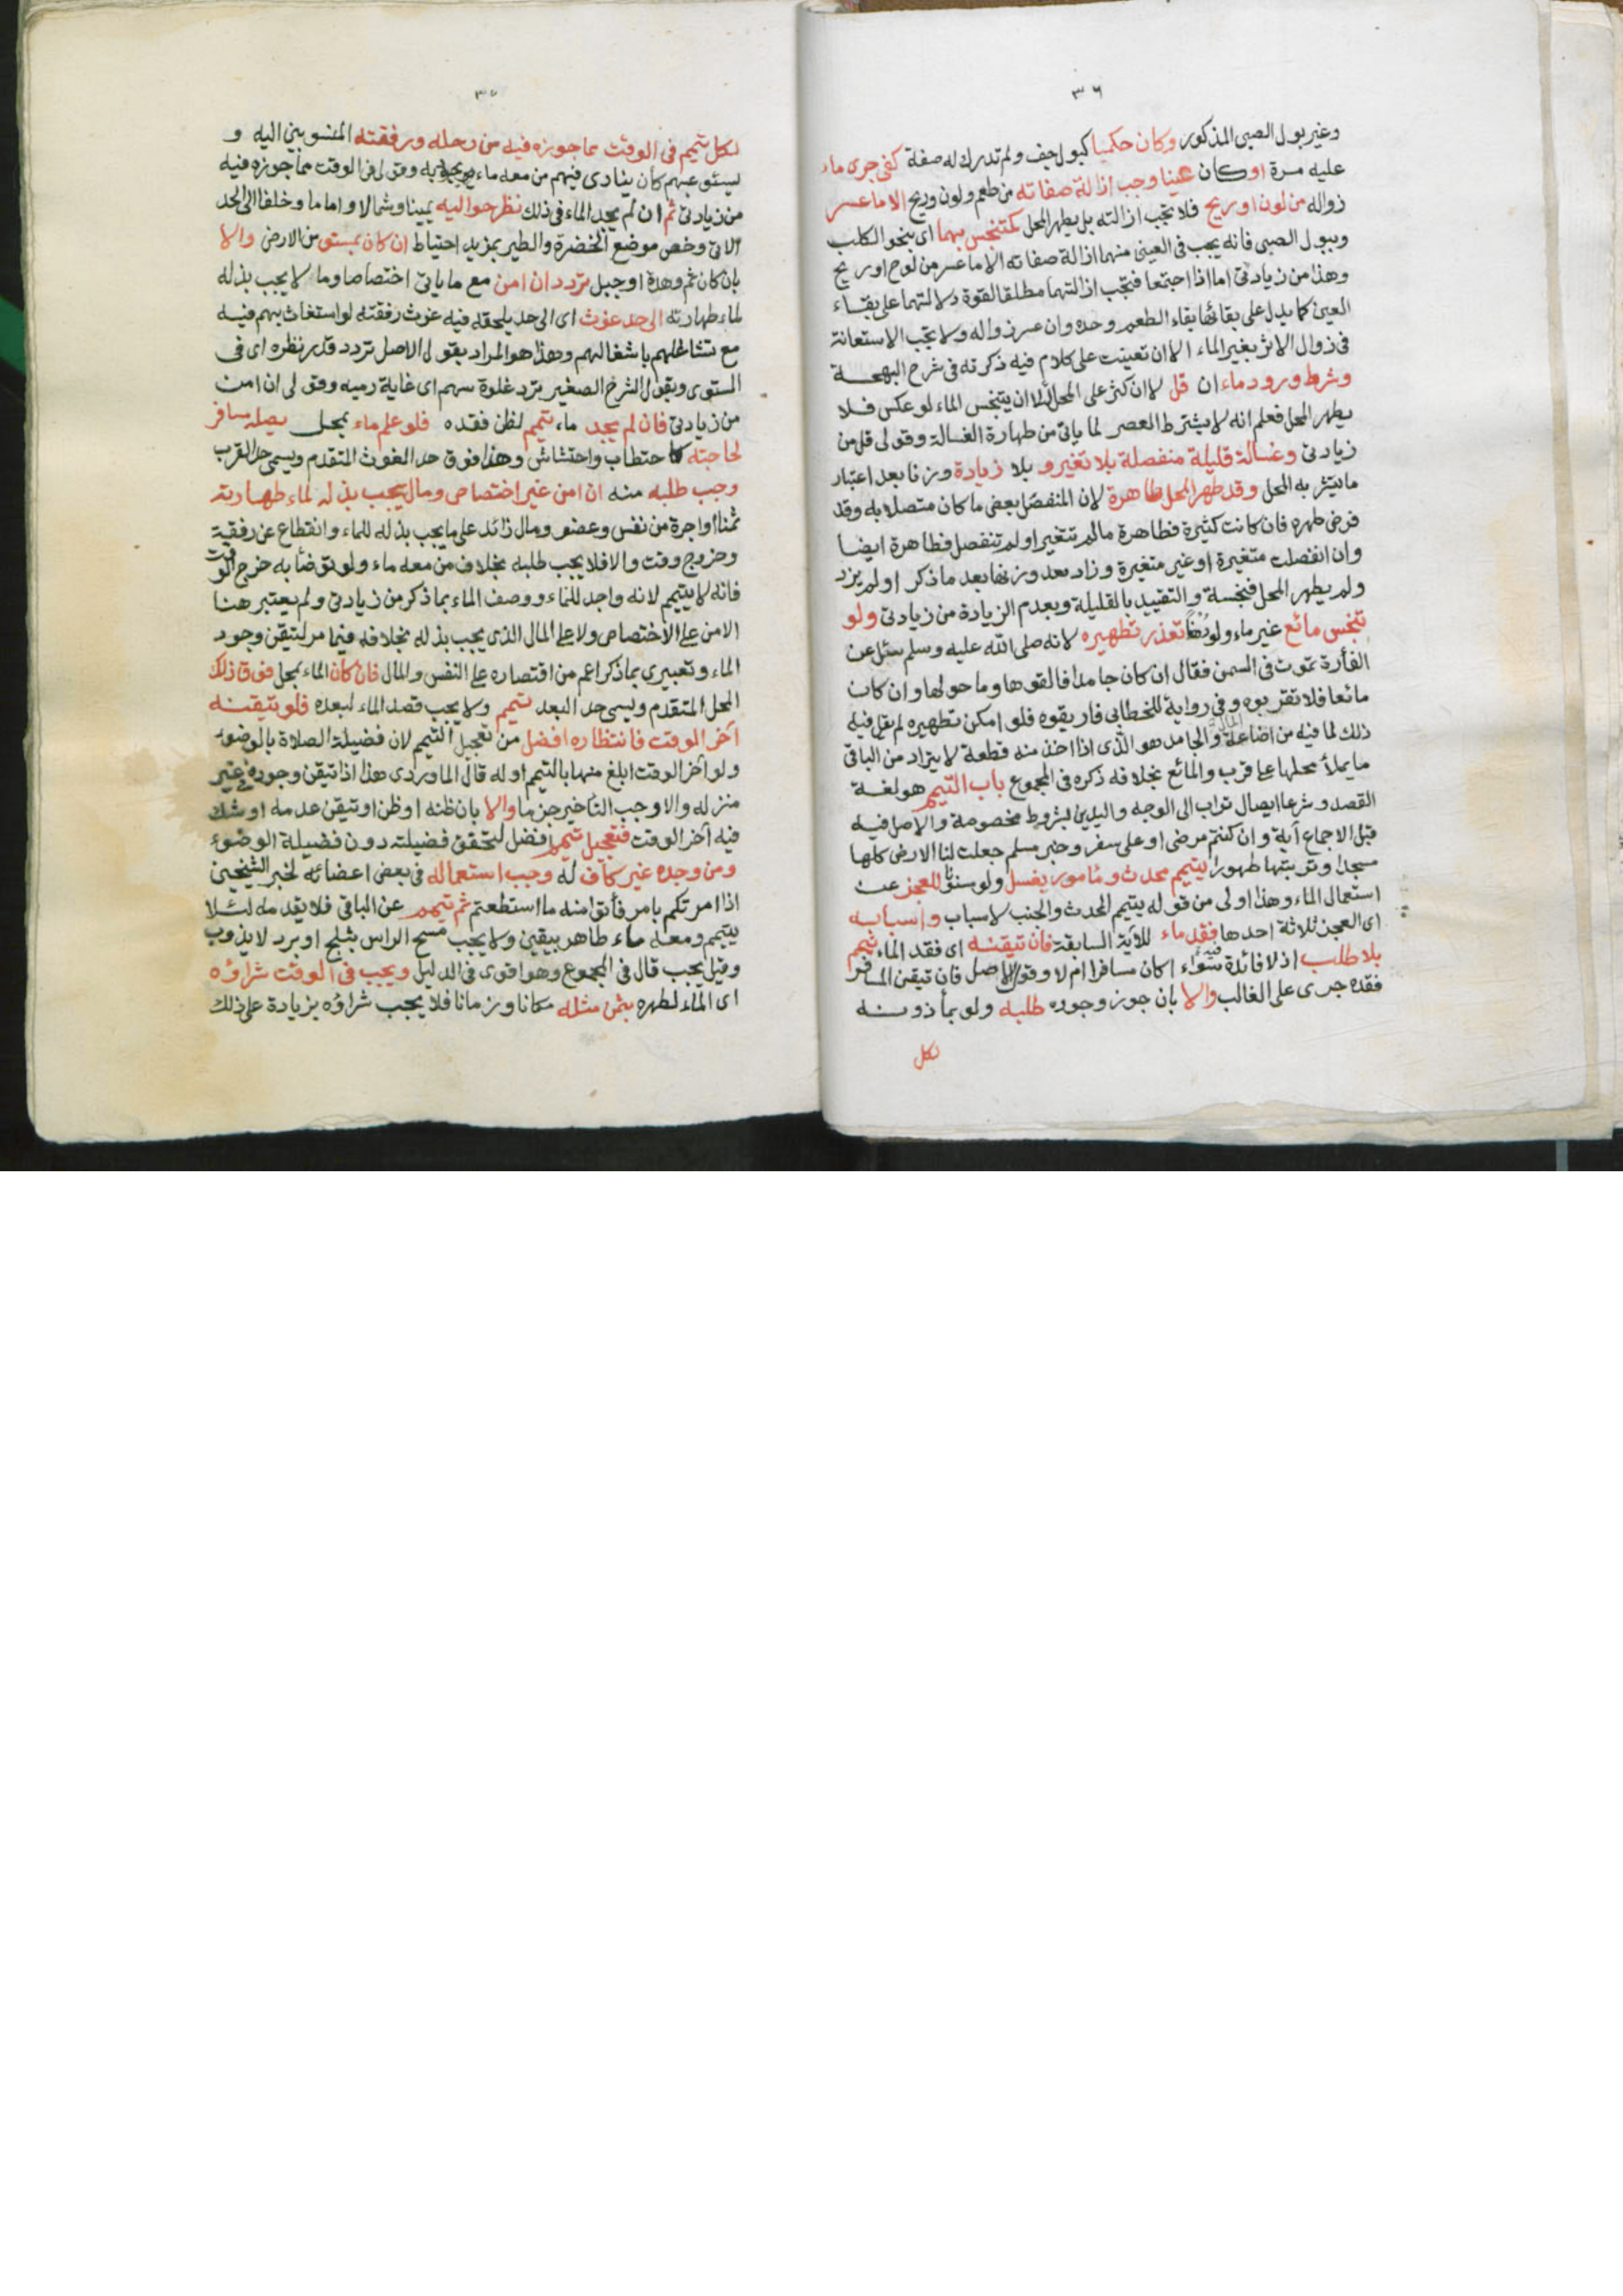 ٣٦
وغير بول الصبي المذكور وكان حكميا كبول جف ولم تدرك له صفة كفى جرى ماء
عليه مرة او كان عينا وجب ازالة صفاته من طعم ولون وريح الا ما عسر
زواله من لون او ريح فلا تجب ازالته بل يطهر المحل كمتنجس بهما اى بنحو الكلب
وببول الصبي فانه يجب فى العيني منهما ازالة صفاته الا ما عسر من لون او ريح
وهذا من زيادتى اما اذا اجتمعا فتجب ازالتهما مطلقا لقوة دلالتهما على بقاء
العين كما يدل على بقائها بقاء الطعم وحده وان عسر زواله ولا تجب الاستعانة
فى زوال الاثر بغير الماء الا ان تعينت على كلام فيه ذكرته فى شرح البهجة
وشرط ورود ماء ان قل لا ان كثر على المحل لئلا يتنجس الماء لو عكس فلا
يطهر المحل فعلم انه لا يشترط العصر لما ياتى من طهارة الغسالة وقولى قل من
زيادتى وغسالة قليلة منفصلة بلا تغير و بلا زيادة وزنا بعد اعتبار
ما يتشربه المحل وقد طهر المحل طاهرة لان المنفصل بعض ما كان متصلا به وقد
فرض طهره فان كانت كثيرة فطاهرة مالم تتغير او لم تنفصل فطاهرة ايضا
وان انفصلت متغيرة او غير متغيرة وزاد بعد وزنها بعد ما ذكر او لم يزد
ولم يطهر المحل فنجسة والتقييد بالقليلة وبعدم الزيادة من زيادتى ولو
تنجس مائع غير ماء ولو دهنا تعذر تطهيره لانه صلى الله عليه وسلم سئل عن
الفأرة تموت فى السمن فقال ان كان جامدا فالقوها وما حولها وان كان
مائعا فلا تقربوه وفى رواية للخطابى فاريقوه فلو امكن تطهيره لم يقل فيه
ذلك لما فيه من اضاعة المال والجامد هو الذى اذا اخذ منه قطعة لا يتراد من الباقى
ما يملأ محلها على قرب والمائع بخلافه ذكره فى المجموع باب التيمم هو لغة
القصد وشرعا ايصال تراب الى الوجه واليدين بشروط مخصوصة والاصل فيه
قبل الاجماع آية وان كنتم مرضى او على سفر وخبر مسلم جعلت لنا الارض كلها
مسجدا وتربتها طهورا يتيمم محدث ومامور بغسل ولو مسنونا للعجز عن
استعمال الماء وهذا اولى من قوله يتيمم المحدث والجنب لاسباب واسبابه
اى العجز ثلاثة احدها فقد ماء للآية السابقة فان تيقنه اى فقد الماء تيمم
بلا طلب اذ لا فائدة فيه سواء اكان مسافرا ام لا وقول الاصل فان تيقن المسافر
فقده جرى على الغالب والا بان جوز وجوده طلبه ولو بمأذونه
لكل
٣٧
لكل تيمم فى الوقت مما جوزه فيه من رحله ورفقته المنسوبين اليه و
يستوعبهم كأن ينادى فيهم من معه ماء يجود به وقولى فى الوقت مما جوزه فيه
من زيادتى ثم ان لم يجد الماء فى ذلك نظر حواليه يمينا وشمالا واماما وخلفا الى الحد
الآتى وخص موضع الخضرة والطير بمزيد احتياط ان كان بمستو من الارض والا
بان كان ثم وهدة او جبل تردد ان امن مع ما ياتى اختصاصا وما لا يجب بذله
لماء طهارته الى حد غوث اى الى حد يلحقه فيه غوث رفقته لو استغاث بهم فيه
مع تشاغلهم باشغالهم وهذا هو المراد بقول الاصل تردد قدر نظره اى فى
المستوى وبقول الشرح الصغير تردد غلوة سهم اى غاية رميه وقولى ان امن
من زيادتى فان لم يجد ماء تيمم لظن فقده فلو علم ماء بمحل يصله مسافر
لحاجته كاحتطاب واحتشاش وهذا فوق حد الغوث المتقدم ويسمى حد القرب
وجب طلبه منه ان امن غير اختصاص ومال يجب بذله لماء طهارته
ثمنا او اجرة من نفس وعضو ومال زائد على ما يجب بذله للماء وانقطاع عن رفقة
وخروج وقت والا فلا يجب طلبه بخلاف من معه ماء ولو توضأ به خرج الوقت
فانه لا يتيمم لانه واجد للماء ووصف الماء بما ذكر من زيادتى ولم يعتبر هنا
الامن على الاختصاص ولا على المال الذى يجب بذله بخلافه فيما مر لتيقن وجود
الماء وتعبيرى بما ذكر اعم من اقتصاره على النفس والمال فان كان الماء بمحل فوق ذلك
المحل المتقدم ويسمى حد البعد تيمم ولا يجب قصد الماء لبعده فلو تيقنه
آخر الوقت فانتظاره افضل من تعجيل التيمم لان فضيلة الصلاة بالوضوء
ولو آخر الوقت ابلغ منها بالتيمم اوله قال الماوردى هذا اذا تيقن وجوده فى غير
منزله والا وجب التأخير جزما والا بان ظنه او ظن او تيقن عدمه او شك
فيه آخر الوقت فتعجيل تيمم افضل لتحقق فضيلته دون فضيلة الوضوء
ومن وجده غير كاف له وجب استعماله فى بعض اعضائه لخبر الشيخين
اذا امرتكم بامر فأتوا منه ما استطعتم ثم تيمم عن الباقى فلا يقدمه لئلا
يتيمم ومعه ماء طاهر بيقين ولا يجب مسح الراس بثلج او برد لا يذوب
وقيل يجب قال فى المجموع وهو اقوى فى الدليل ويجب فى الوقت شراؤه
اى الماء لطهره بثمن مثله مكانا وزمانا فلا يجب شراؤه بزيادة على ذلك